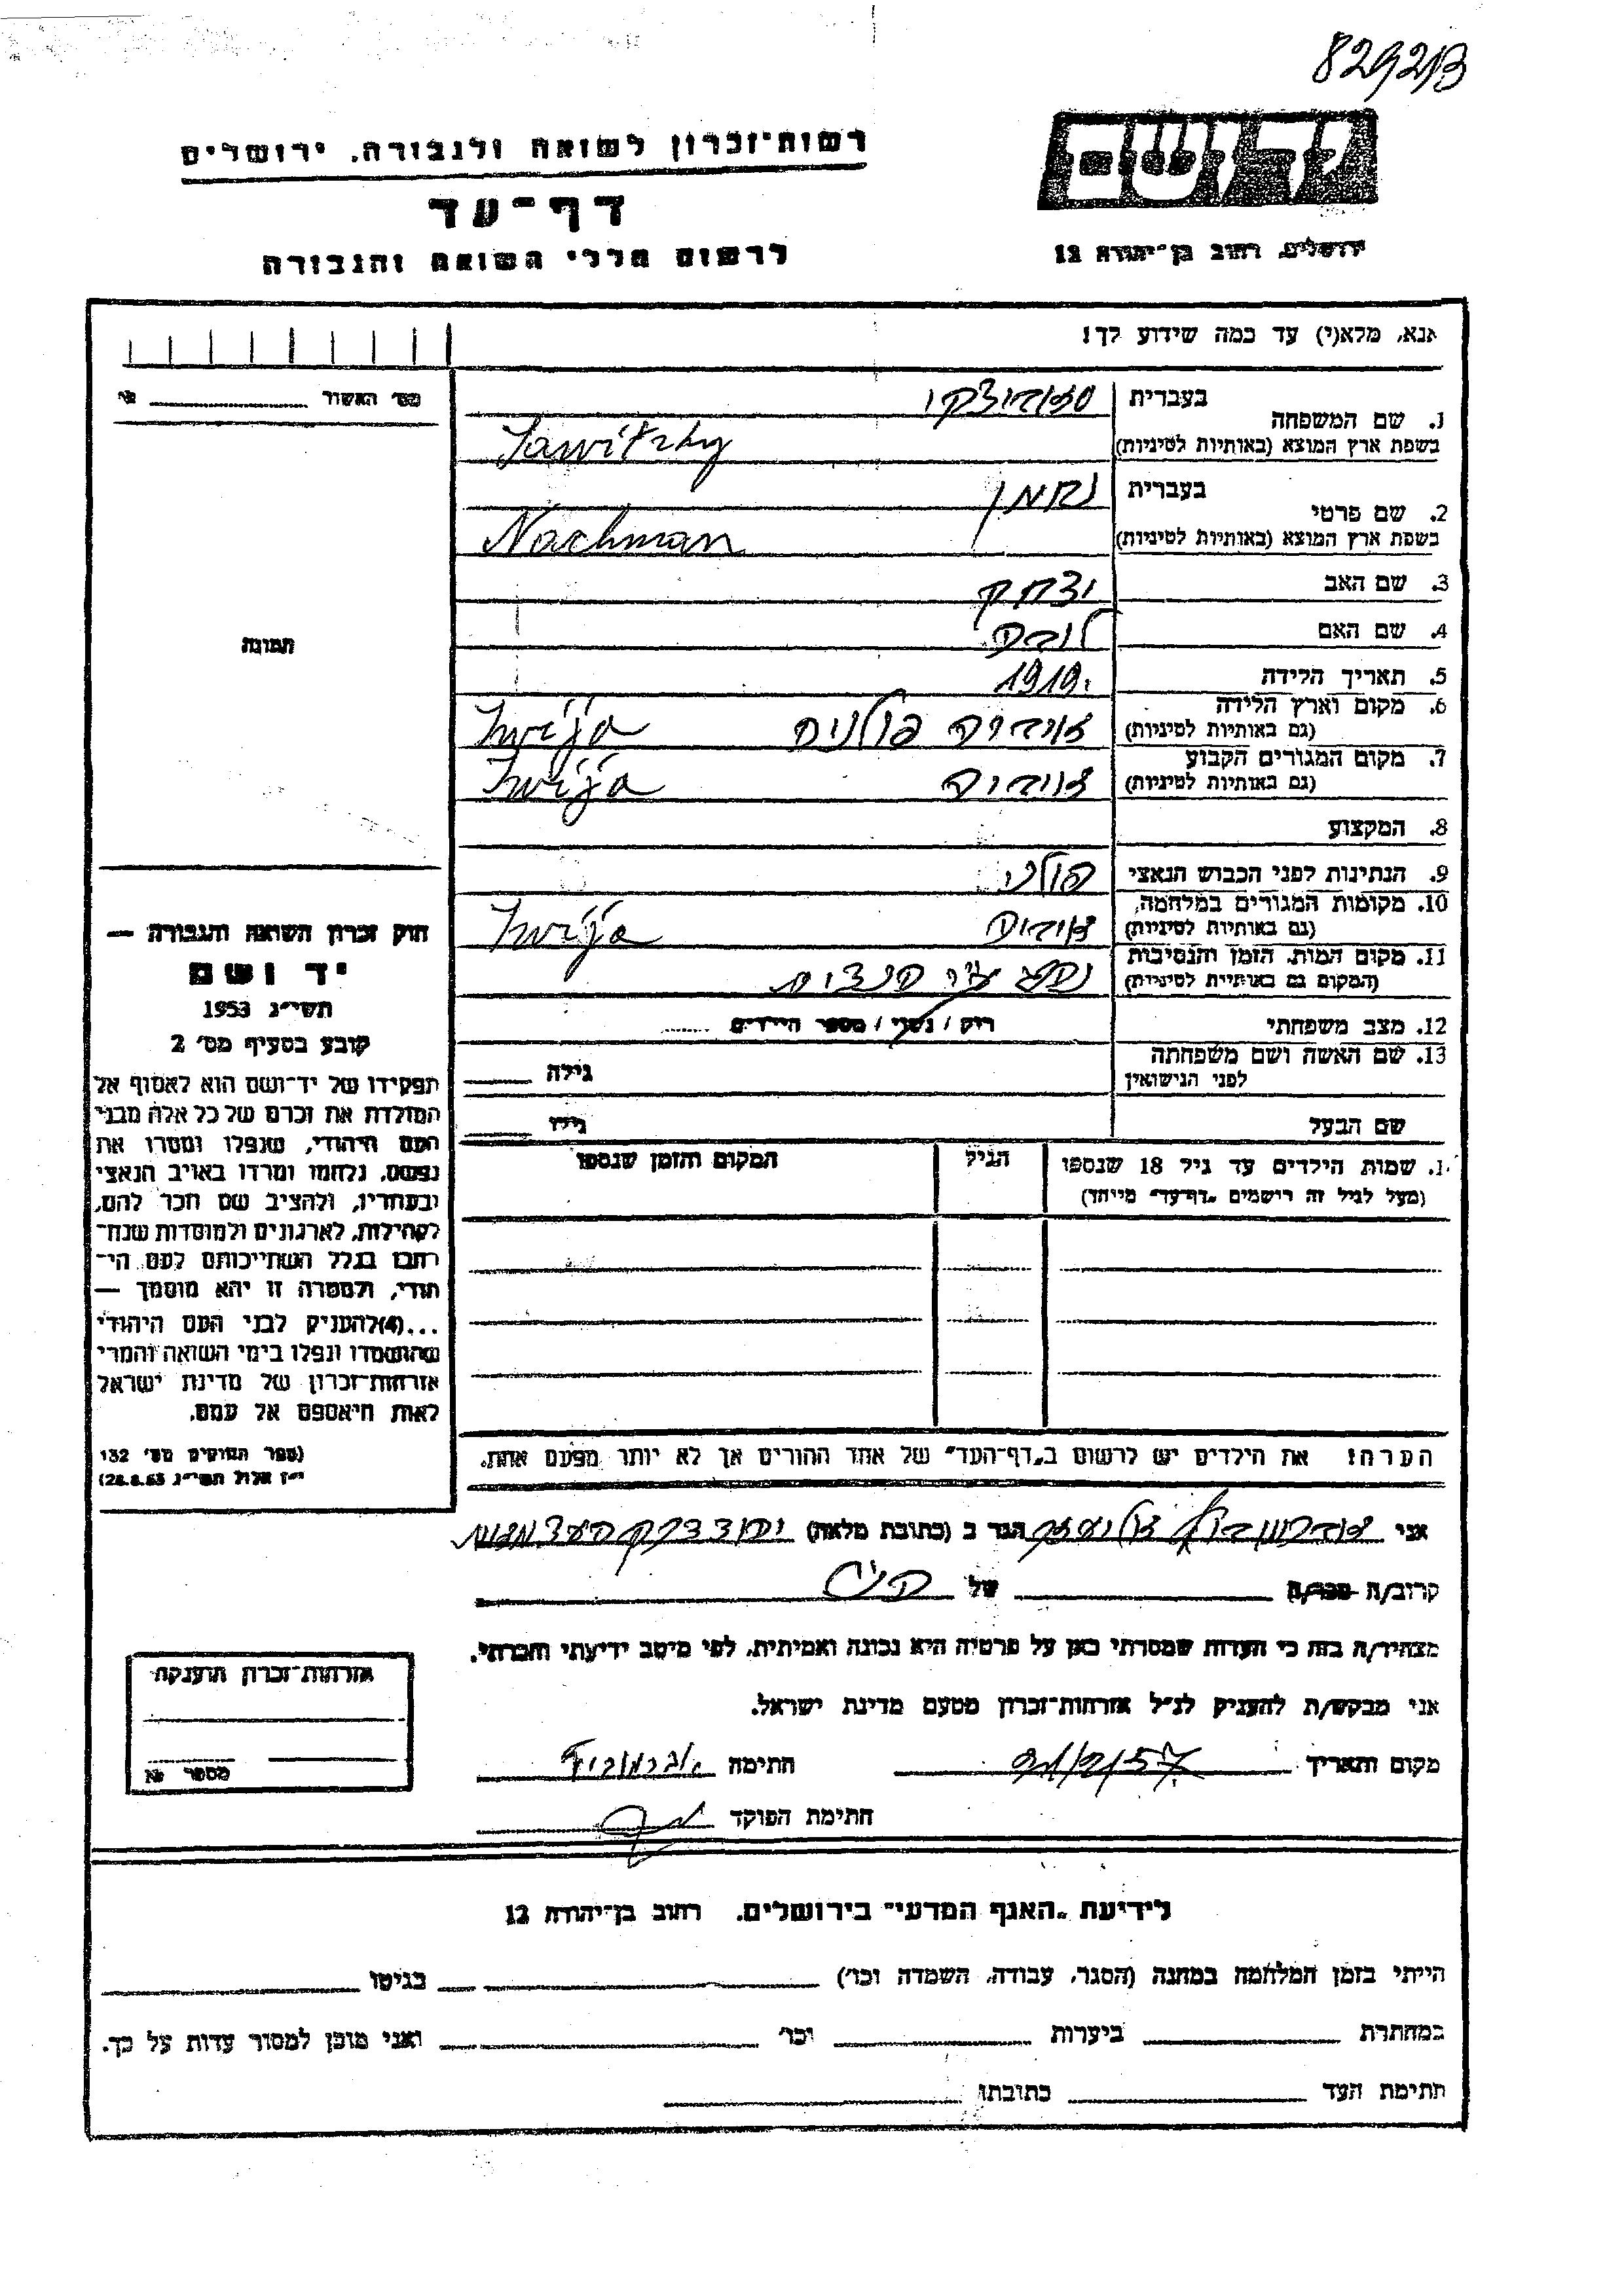 8292B
רשות־זכרון לשואה ולגבורה, ירושלים
יד ושם
דף־עד
לרשום חללי השואה והגבורה
ירושלים, רחוב בן־יהודה 12
אנא, מלא(י) עד כמה שידוע לך!
מס׳ האשור № 
1. שם המשפחה
בעברית
בשפת ארץ המוצא (באותיות לטיניות) Sawitzky
2. שם פרטי
בעברית נחמן
בשפת ארץ המוצא (באותיות לטיניות) Nachman
3. שם האב יצחק
4. שם האם
5. תאריך הלידה 1919.
6. מקום וארץ הלידה
(גם באותיות לטיניות) פולניה
7. מקום המגורים הקבוע
(גם באותיות לטיניות)
8. המקצוע
9. הנתינות לפני הכבוש הנאצי פולני
10. מקומות המגורים במלחמה,
(גם באותיות לטיניות)
11. מקום המות, הזמן והנסיבות
(המקום גם באותיות לטיניות)
12. מצב משפחתי רוק / נשוי / מספר הילדים
13. שם האשה ושם משפחתה
לפני הנישואין גילה
שם הבעל גילו
תמונה
חוק זכרון השואה והגבורה —
יד ושם
תשי״ג 1953
קובע בסעיף מס׳ 2
תפקידו של יד־ושם הוא לאסוף אל
המולדת את זכרם של כל אלה מבני
העם היהודי, שנפלו ומסרו את
נפשם, נלחמו ומרדו באויב הנאצי
ובעוזריו, ולהציב שם וזכר להם,
לקהילות, לארגונים ולמוסדות שנח־
רבו בגלל השתייכותם לעם הי־
הודי, ולמטרה זו יהא מוסמך —
...(4)להעניק לבני העם היהודי
שהושמדו ונפלו בימי השואה והמרי
אזרחות־זכרון של מדינת ישראל
לאות היאספם אל עמם.
(ספר החוקים מס׳ 132
י״ז אלול תשי״ג 28.8.53)
שמות הילדים עד גיל 18 שנספו
(מעל לגיל זה רישמים „דף־עד” מייחד)
הגיל
המקום והזמן שנספו
הערה! את הילדים יש לרשום ב„דף־העד” של אחד ההורים אך לא יותר מפעם אחת.
אני הגר ב (כתובת מלאה)
קרוב/ה מכר/ה של
מצהיר/ה בזה כי העדות שמסרתי כאן על פרטיה היא נכונה ואמיתית, לפי מיטב ידיעתי והכרתי.
אני מבקש/ת להעניק לנ״ל אזרחות־זכרון מטעם מדינת ישראל.
מקום ותאריך חתימה
חתימת הפוקד
אזרחות־זכרון הוענקה
מספר №
לידיעת „האגף המדעי” בירושלים, רחוב בן־יהודה 12
הייתי בזמן המלחמה במחנה (הסגר, עבודה, השמדה וכו׳) בגיטו
במחתרת ביערות וכו׳ ואני מוכן למסור עדות על כך.
חתימת העד כתובתו